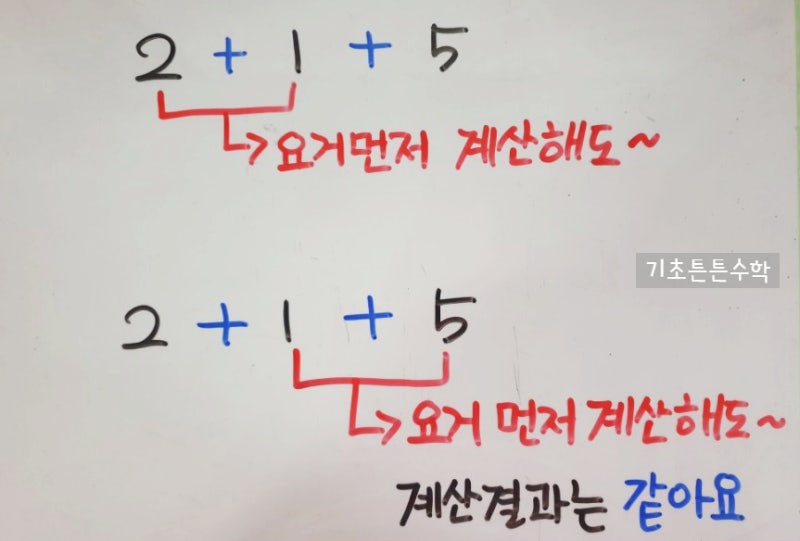 2 + 1 + 5
요거먼저 계산해도~
기초튼튼수학
2 + 1 + 5
요거 먼저 계산해도~
계산결과는 같아요